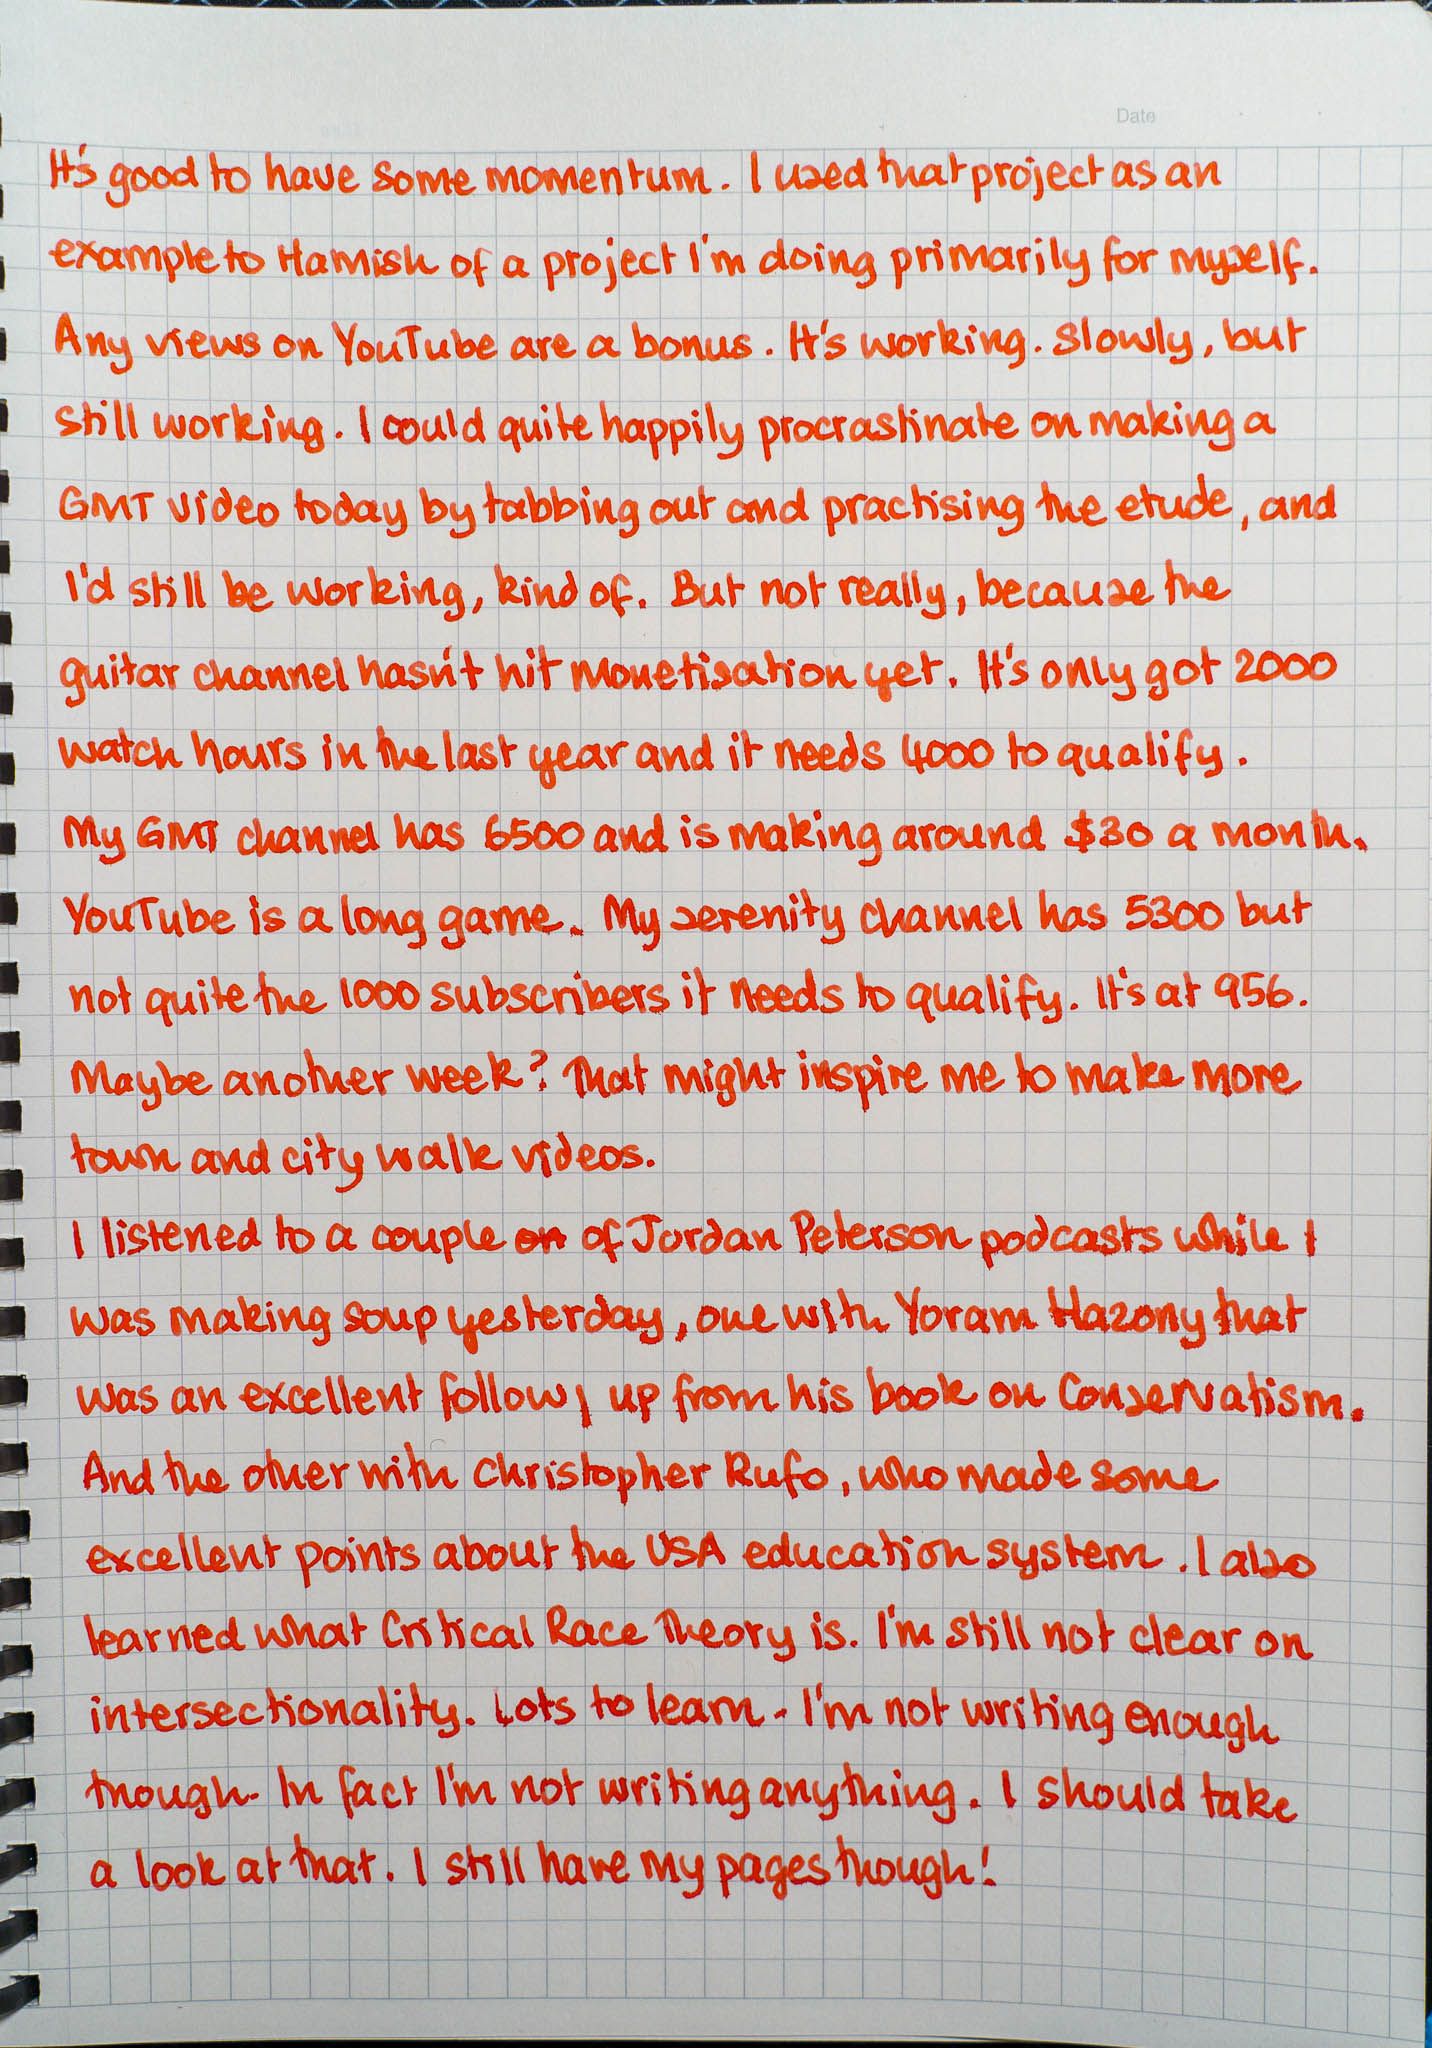 Date
It's good to have some momentum. I used that project as an
example to Hamish of a project I'm doing primarily for myself.
Any views on YouTube are a bonus. It's working. Slowly, but
still working. I could quite happily procrastinate on making a
GMT video today by tabbing out and practising the etude, and
I'd still be working, kind of. But not really, because the
guitar channel hasn't hit monetisation yet. It's only got 2000
watch hours in the last year and it needs 4000 to qualify.
My GMT channel has 6500 and is making around $30 a month.
YouTube is a long game. My serenity channel has 5300 but
not quite the 1000 subscribers it needs to qualify. It's at 956.
Maybe another week? That might inspire me to make more
town and city walk videos.
I listened to a couple on of Jordan Peterson podcasts while I
was making soup yesterday, one with Yoram Hazony that
was an excellent follow up from his book on Conservatism.
And the other with Christopher Rufo, who made some
excellent points about the USA education system. I also
learned what Critical Race Theory is. I'm still not clear on
intersectionality. Lots to learn. I'm not writing enough
though. In fact I'm not writing anything. I should take
a look at that. I still have my pages though!